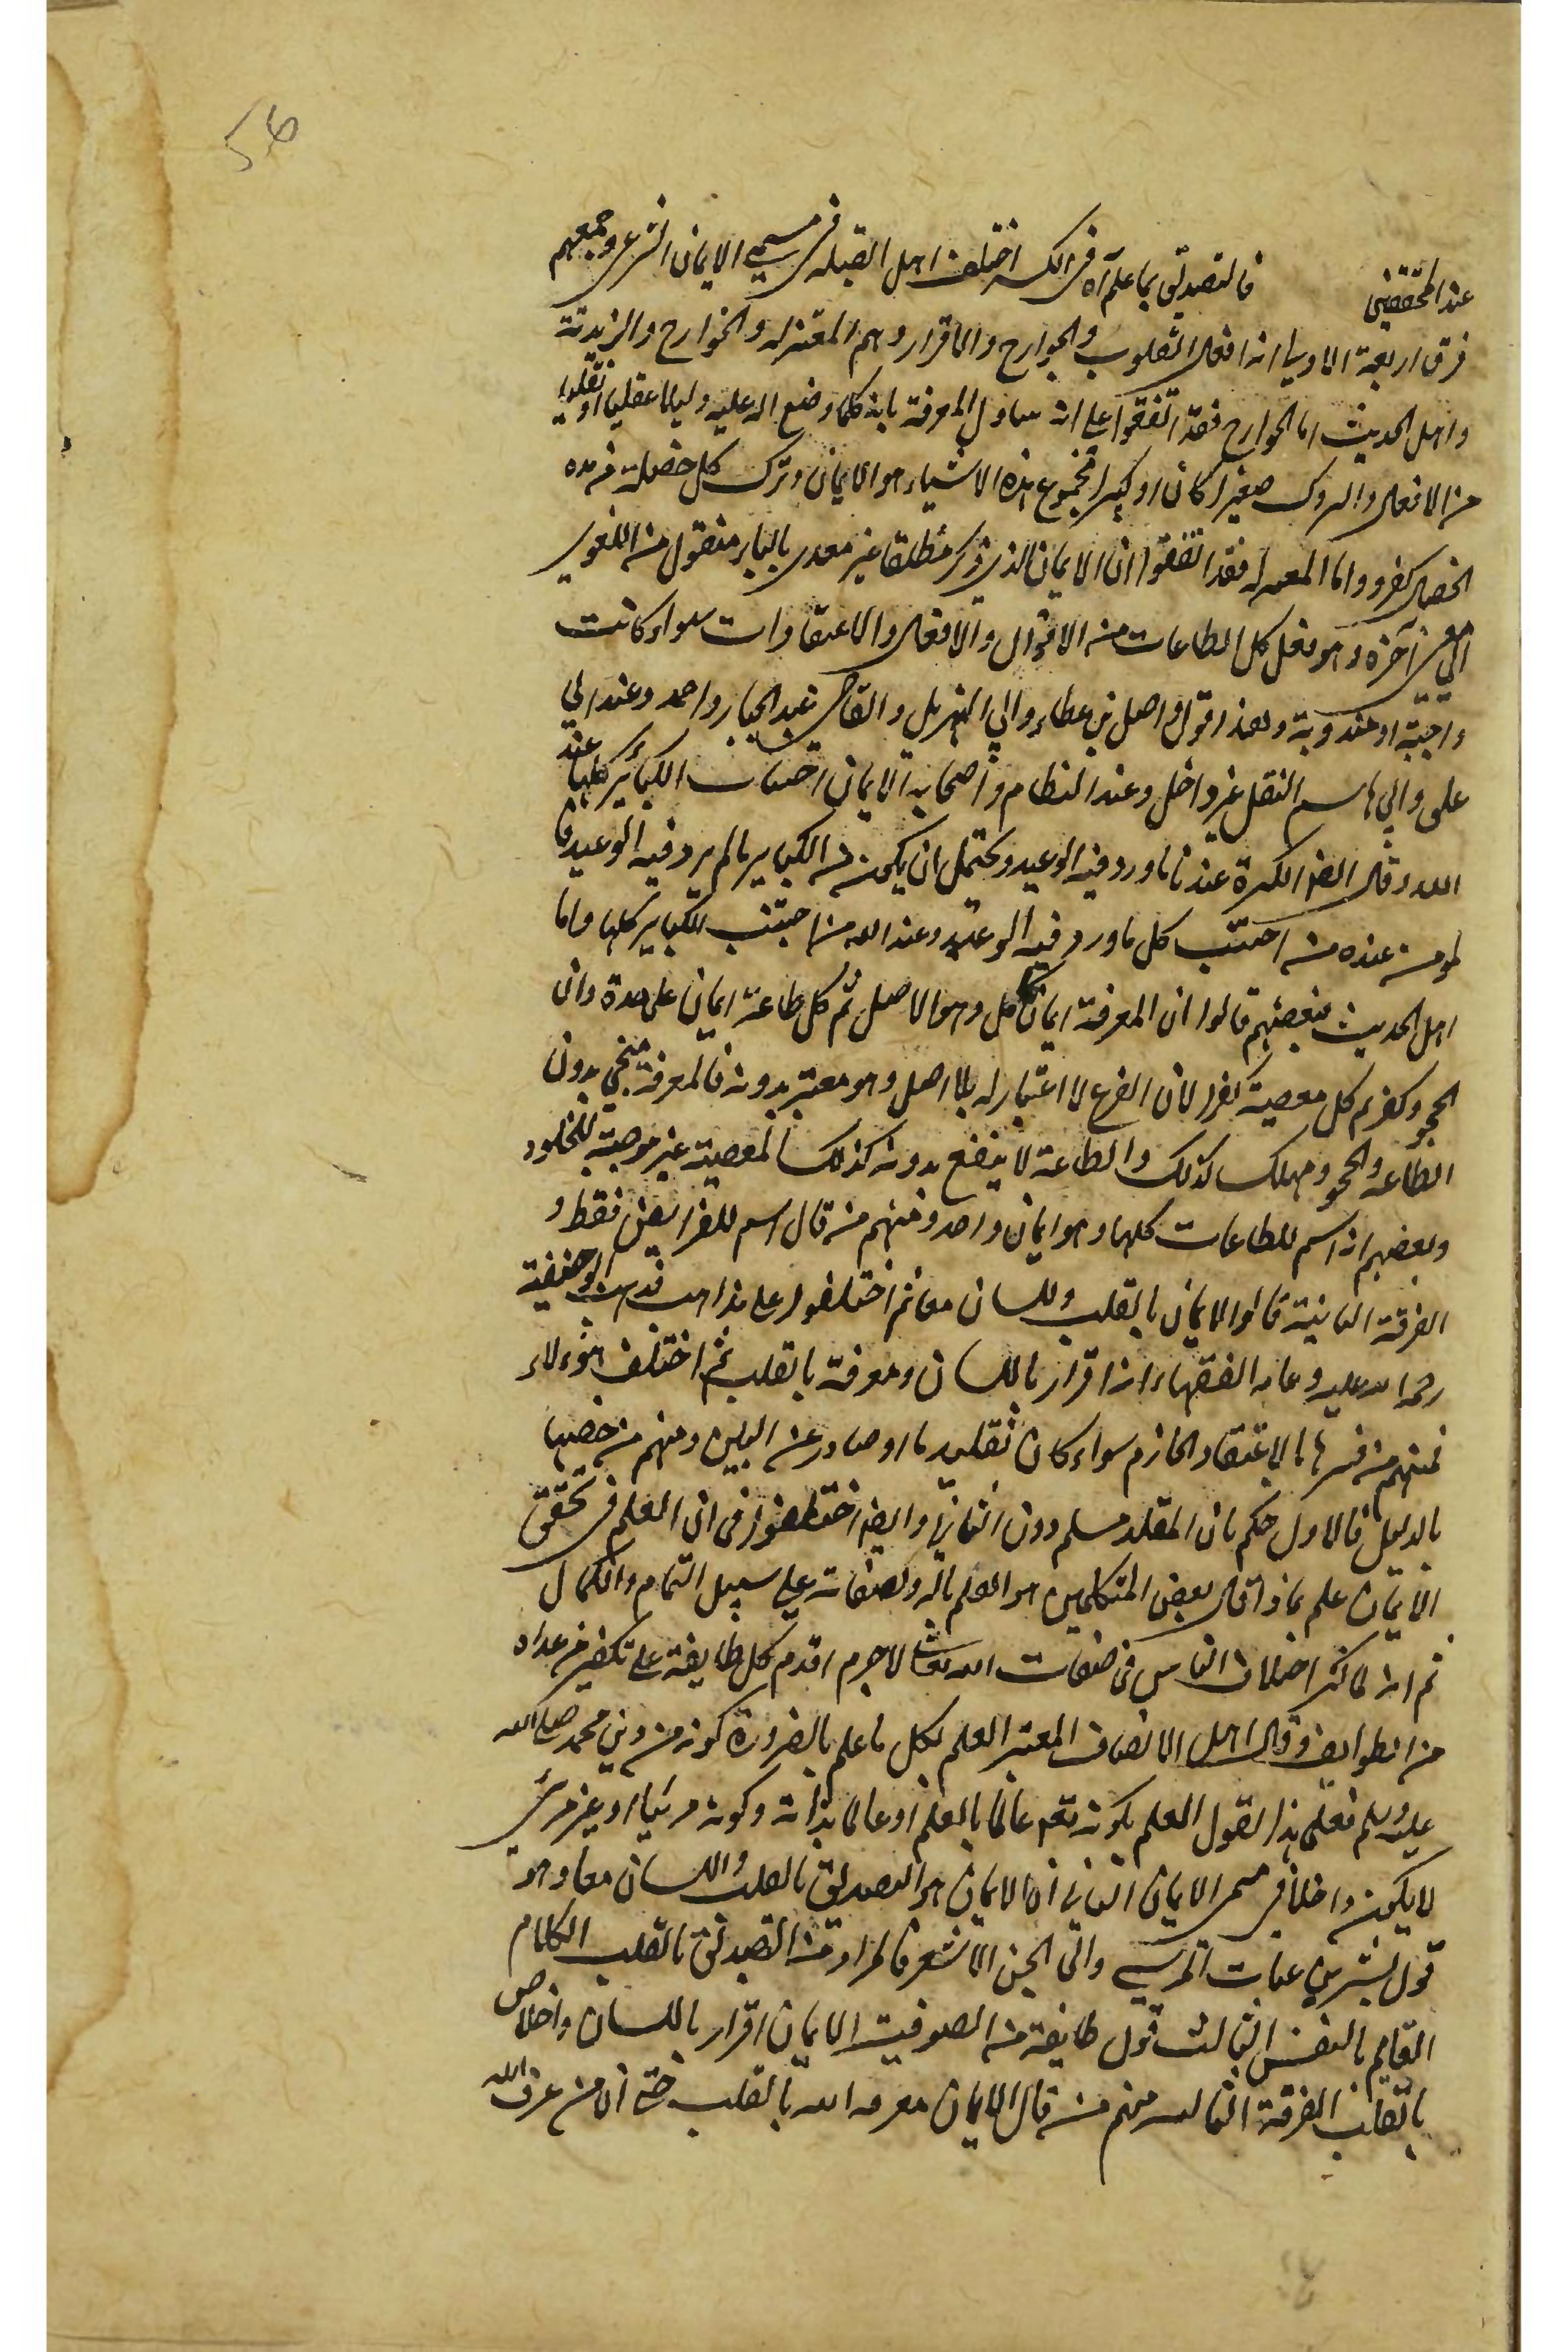 56
عند المحققين فالتصديق بما علم آه فى الكـ اختلف اهل القبلة فى مسمى الايمان الشرعى وجمعهم
فرق اربعة الاولى انه افعال القلوب والجوارح والاقرار وهم المعتزلة والخوارج والزيدية
واهل الحديث اما الخوارج فقد اتفقوا على انه يتناول المعرفة بالله وكلما وضع الله عليه دليلا عقليا او نقليا
من الافعال والتروك صغيرا كان او كبيرا فمجموع هذه الاشياء هو الايمان وترك كل خصلة من هذه
الخصال كفر واما المعتزلة فقد اتفقوا ان الايمان الذى ذكر مطلقا غير معدى بالباء منقول من اللغوى
الى معنى آخر وهو فعل كل الطاعات من الاقوال والافعال والاعتقادات سواء كانت
واجبة او مندوبة وهذا قول واصل بن عطاء وابى الهذيل والقاضى عبد الجبار واحمد وعند ابى
على وابى هاسم النفل غير داخل وعند النظام واصحابه الايمان اجتناب الكبائر كلها عند
الله وقال ايضا الكبيرة عندنا ما ورد فيه الوعيد ويحتمل ان يكون من الكبائر ما لم يرد فيه الوعيد
لمومن عنده من اجتنب كل ما ورد فيه الوعيد وعند الله من اجتنب الكبائر كلها واما
اهل الحديث فبعضهم قالوا ان المعرفة ايمان كامل وهو الاصل ثم كل طاعة ايمان على حدة وان
الجحود كفر ثم كل معصية كفر لان الفرع لا اعتبار له بلا اصل وهو معتبر بدونه فالمعرفة منجى بدون
الطاعة والجحود مهلك كذلك والطاعة لا ينفع بدونه كذلك المعصية غير موجبة للخلود
وبعضهم انه اسم للطاعات كلها وهو ايمان واحد ومنهم من قال اسم للفرايض فقط و
الفرقة الثانية قالوا الايمان بالقلب واللسان معا ثم اختلفوا على مذاهب فذهب ابو حنيفة
رحمة الله عليه وعامة الفقهاء انه اقرار باللسان ومعرفة بالقلب ثم اختلف هؤلاء
فمنهم من فسرها بالاعتقاد الجازم سواء كان تقليديا او صادر عن الدليل ومنهم من خصها
بالدليل فالاول حكم بان المقلد مسلم دون الثانى وايضا اختلفوا فى ان العلم فى تحقق
الايمان علم بماذا قال بعض المتكلمين هو العلم بالله وصفاته على سبيل التمام والكمال
ثم انه لما كثر اختلاف الناس فى صفات الله تعالى لا جرم اقدم كل طايفة على تكفير من عداه
من الطوايف وقال اهل الانصاف المعتبر العلم بكل ما علم بالضرورة كونه من دين محمد صلى الله
عليه وسلم فعلى هذا القول العلم بكونه تعالى عالما بالعلم او عالما بذاته وكونه مرئيا او غير مرئى
لا يكون داخلا فى مسمى الايمان الثانى ان الايمان هو التصديق بالقلب واللسان معا وهو
قول بشر بن عتاب المريسى وابى الحسن الاشعرى فالمراد من التصديق بالقلب الكلام
القايم بالنفس الثالث قول طايفة من الصوفية الايمان اقرار باللسان واخلاص
بالقلب الفرقة الثالثة منهم من قال الايمان معرفة الله بالقلب حتى ان من عرف الله